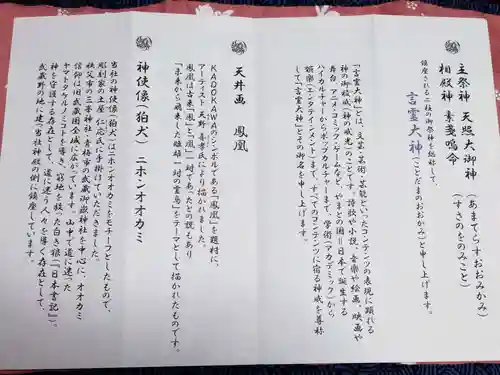 主祭神　天照大御神（あまてらすおおみかみ）
相殿神　素戔嗚命（すさのをのみこと）
鎮座される二柱の御祭神を総称して、
言霊大神（ことだまのおおかみ）と申し上げます。
「言霊大神」とは、文芸・芸術・芸能といったコンテンツの表現に顕れる
神の御稜威（神の威光）のことです。詩歌や小説、音楽や絵画、映画や
舞台、アニメ・コミック・ゲームなど、やまとの国＝日本で誕生する
ハイカルチャーからポップカルチャーまで、学術（アカデミック）から
娯楽（エンタテインメント）まで、すべてのコンテンツに宿る神威を尊称
して「言霊大神」とその御名を申し上げます。
天井画　鳳凰
KADOKAWAのシンボルである「鳳凰」を題材に、
アーティスト 天野 喜孝氏により描かれました。
鳳凰は古来「鳳」と「凰」一対であったとの説もあり
「未来から飛来した雌雄一対の霊鳥」をテーマとして描かれたものです。
神使像（狛犬）　ニホンオオカミ
当社の神使像（狛犬）はニホンオオカミをモチーフとしたもので、
彫刻家の土屋 仁応氏に手掛けていただきました。
秩父市の三峯神社・青梅市の武蔵御嶽神社を中心に、オオカミ
信仰は旧武蔵国全域に広がっています。山中で道に迷った
ヤマトタケルノミコトを導き、窮地を救った白き狼（『日本書記』）。
神を守護する存在として、道に迷う人々を導く存在として、
武蔵野の地に建つ当社神殿の側に鎮座しています。